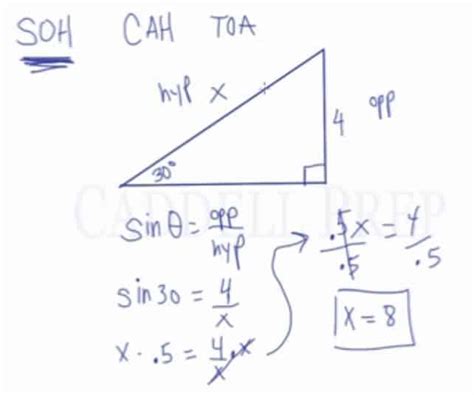 SOH CAH TOA
hyp x
4 opp
30°
CADDELL PREP
sinθ = opp/hyp
sin30 = 4/x
x · .5 = 4/x · x
.5x/.5 = 4/.5
x = 8